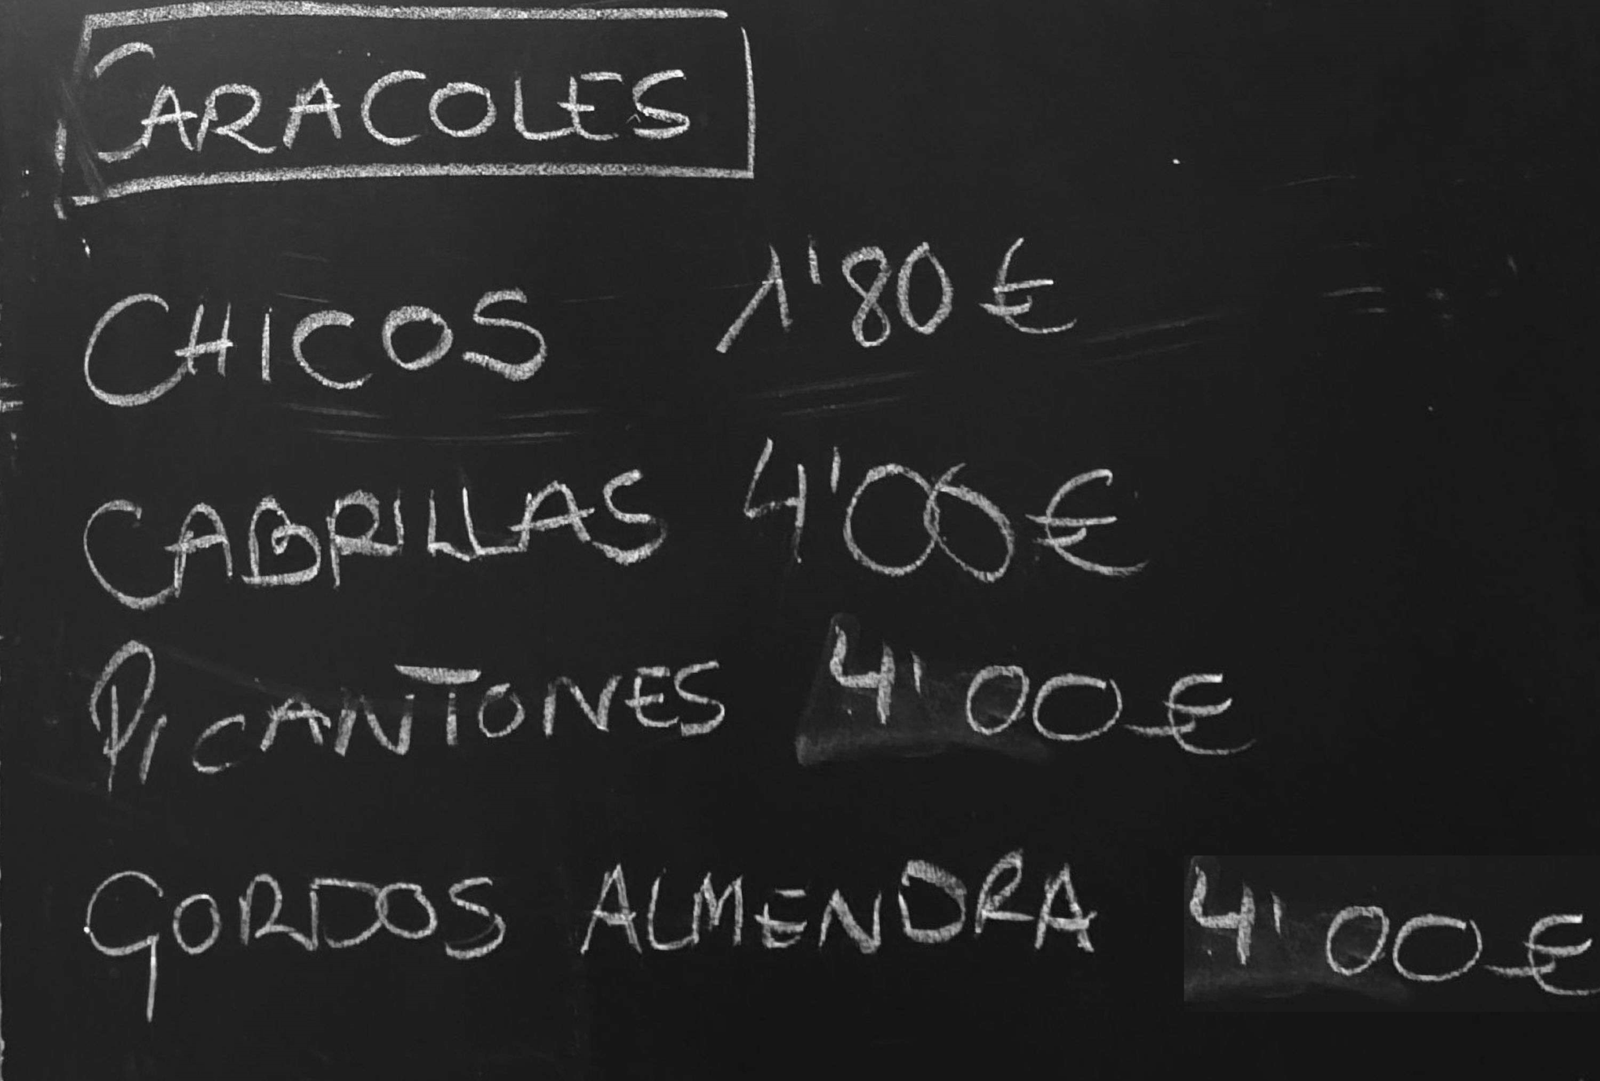 CARACOLES
CHICOS 1'80 €
CABRILLAS 4'00 €
PICANTONES 4'00 €
GORDOS ALMENDRA 4'00 €